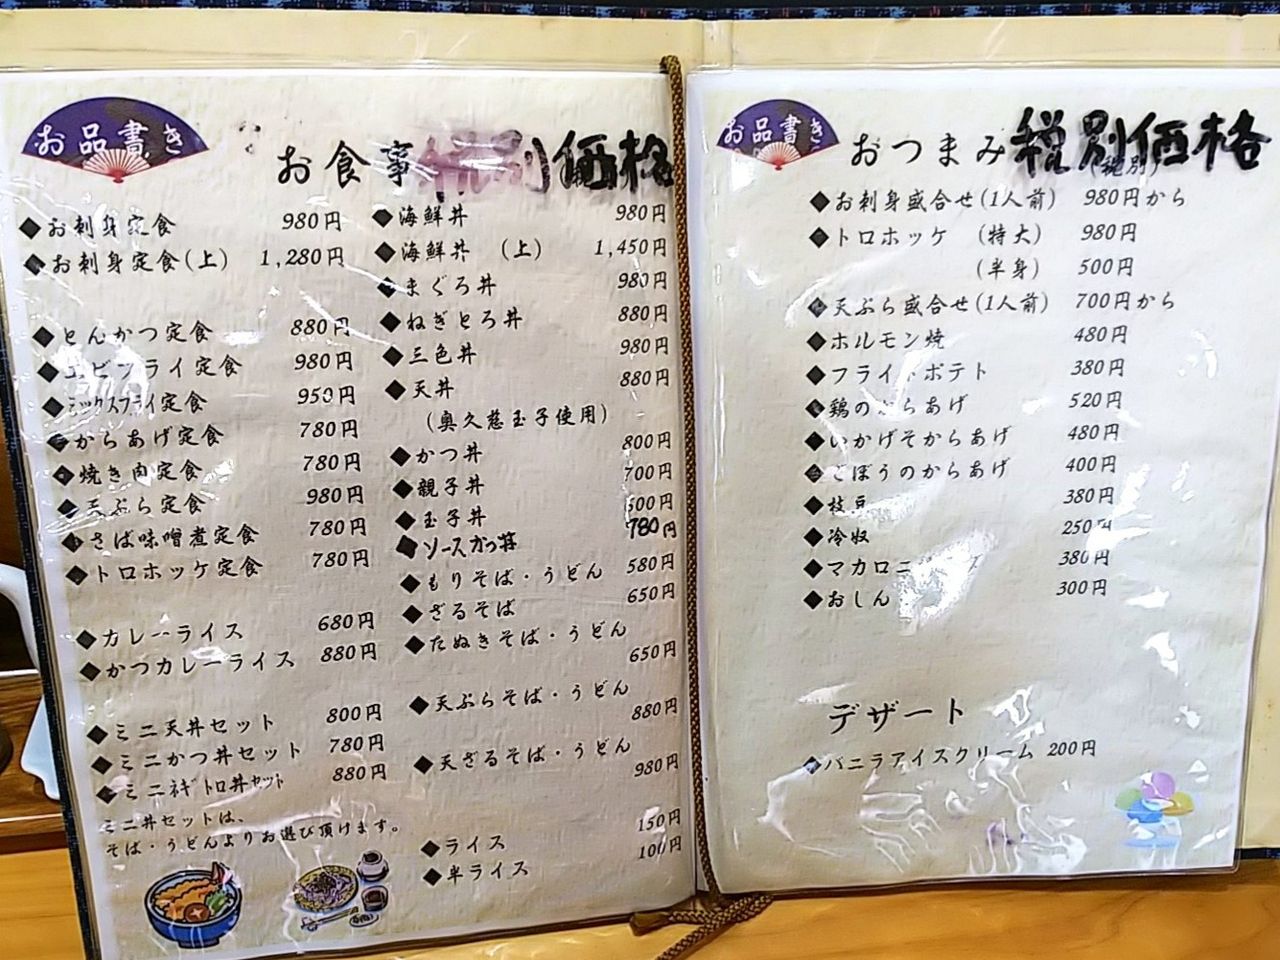 お品書き
お食事 税別価格
◆お刺身定食 980円
◆お刺身定食(上) 1,280円
◆とんかつ定食 880円
◆エビフライ定食 980円
◆ミックスフライ定食 950円
◆からあげ定食 780円
◆焼き肉定食 780円
◆天ぷら定食 980円
◆さば味噌煮定食 780円
◆トロホッケ定食 780円
◆カレーライス 680円
◆かつカレーライス 880円
◆ミニ天丼セット 800円
◆ミニかつ丼セット 780円
◆ミニネギトロ丼セット 880円
ミニ丼セットは、
そば・うどんよりお選び頂けます。
◆海鮮丼 980円
◆海鮮丼 (上) 1,450円
◆まぐろ丼 980円
◆ねぎとろ丼 880円
◆三色丼 980円
◆天丼 880円
(奥久慈玉子使用)
◆かつ丼 800円
◆親子丼 700円
◆玉子丼 600円
◆ソースかつ丼 780円
◆もりそば・うどん 580円
◆ざるそば 650円
◆たぬきそば・うどん 650円
◆天ぷらそば・うどん 880円
◆天ざるそば・うどん 980円
◆ライス 150円
◆半ライス 100円
お品書き
おつまみ 税別価格
(税別)
◆お刺身盛合せ(1人前) 980円から
◆トロホッケ (特大) 980円
(半身) 500円
◆天ぷら盛合せ(1人前) 700円から
◆ホルモン焼 480円
◆フライドポテト 380円
◆鶏のからあげ 520円
◆いかげそからあげ 480円
◆ごぼうのからあげ 400円
◆枝豆 380円
◆冷奴 250円
◆マカロニ 380円
◆おしん 300円
デザート
◆バニラアイスクリーム 200円